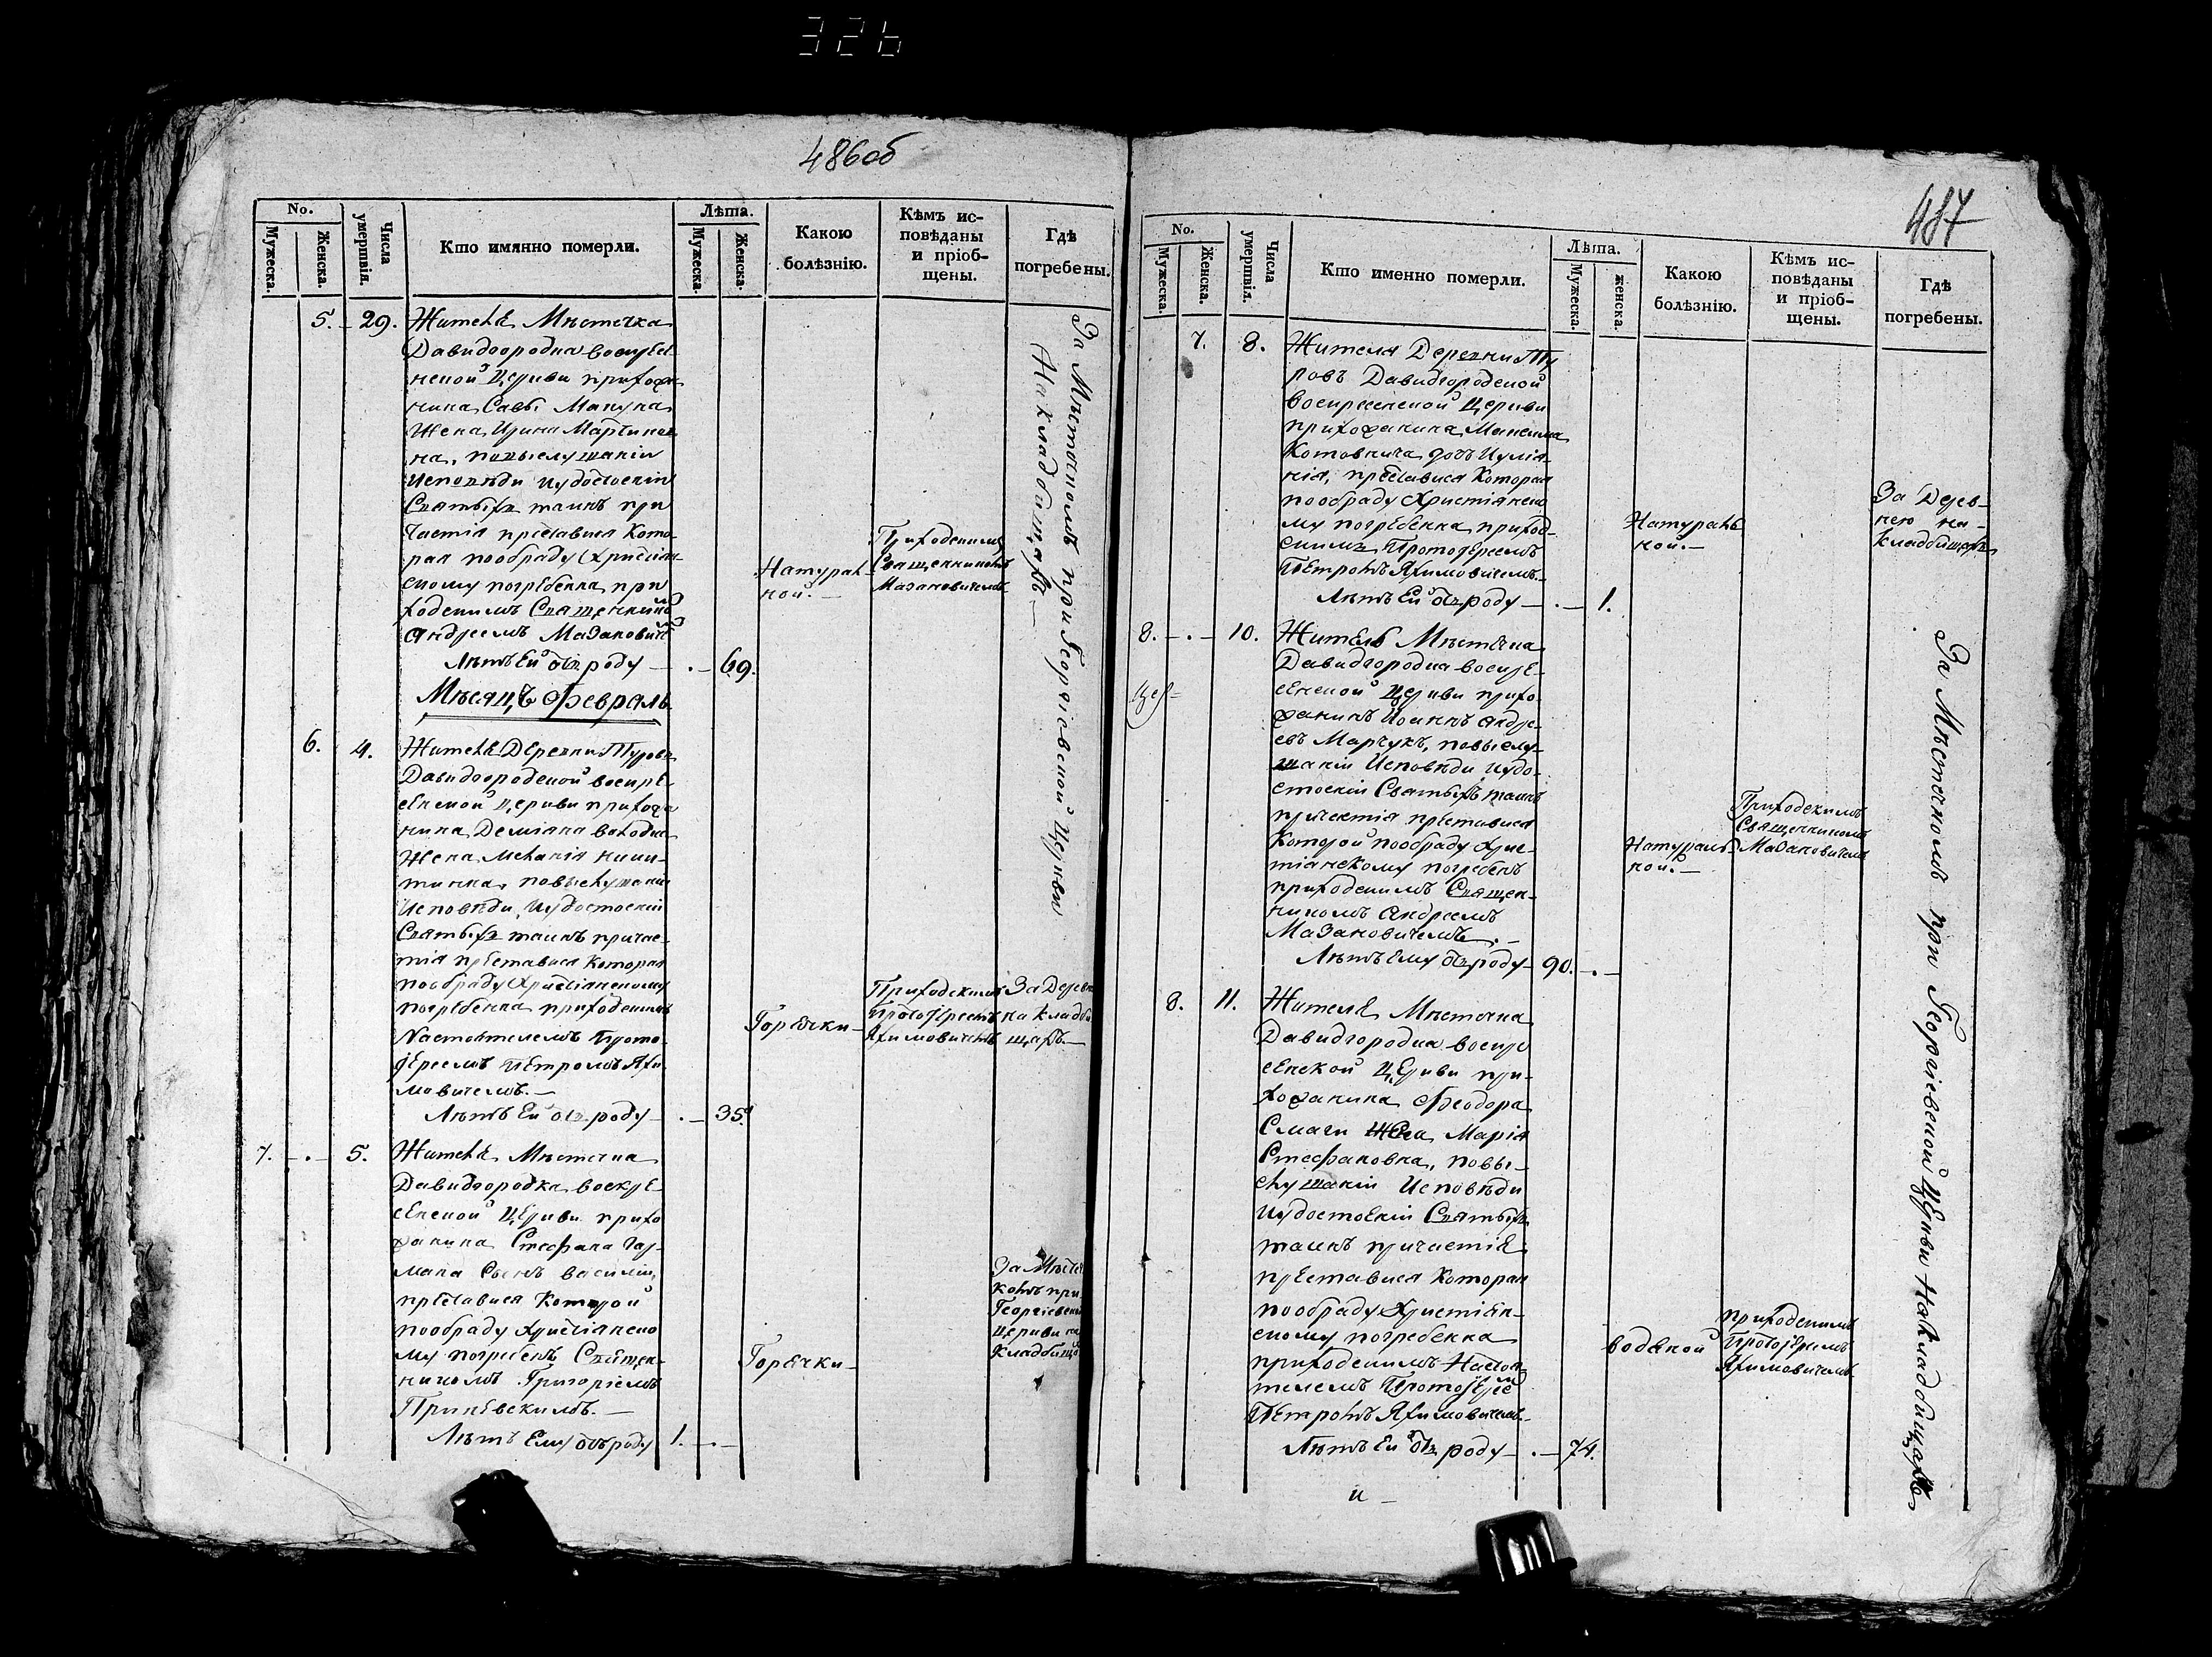 326
486об
No.
Мужеска.
Женска.
Числа умертвія.
Кто имянно померли.
Лѣта.
Мужеска.
Женска.
Какою болѣзнію.
Кѣмъ исповѣданы и пріобщены.
Гдѣ погребены.
5. - 29. Жителя Мѣстечка
Давидгородка воскресен
неской Церкви прихожа
нина Савы
Жена Ирина Мартинов
на, повыслушаніи
Исповѣди иудостоеніи
Святыхъ таинъ при
частія преставися Кото
рая пообряду Христіан
скому погребенна при
ходскимъ Священником
Андреемъ Мазановичем
Лѣтъ Ей отъ роду — . — 69.
Натураль
ной. —
Приходскимъ
Священникомъ
Мазановичемъ
За Мѣстечкомъ при Георгіевской Церкви
На кладбищахъ —
Мѣсяцъ Февраль
6. 4. Жителя Деревни Туровъ
Давидгородской воскре
сенской Церкви прихожа
нина Деміяна
Жена Меланія Ники
тична, повыслушаніи
Исповѣди, иудостоеніи
Святыхъ таинъ причас
тія преставися Которая
пообряду Христіянскому
погребенна приходскимъ
Настоятелемъ Прото
іереемъ Петромъ Яхи
мовичемъ. —
Лѣтъ Ей отъ роду — . — 35.
Горячки —
Приходскимъ
Протоіереемъ
Яхимовичемъ
За Деревн
на кладби
щахъ. —
7. — . — 5. Жителя Мѣстечка
Давидгородка воскре
сенской Церкви прихо
жанина Стефана Гар
мана Сынъ василій,
преставися Которой
пообряду Христіянско
му погребенъ Священ
никомъ Григоріемъ
Лѣтъ Ему отъ роду 1. — . —
Горячки —
За Мѣстеч
комъ при
Георгіевской
Церкви на
Кладбищѣ
487
No.
Мужеска.
Женска.
Числа умертвія.
Кто именно померли.
Лѣта.
Мужеска.
женска.
Какою болѣзнію.
Кѣмъ исповѣданы и пріобщены.
Гдѣ погребены.
7. 8. Жителя Деревни Ту
ровъ Давидгородской
воскресенской Церкви
прихожанина Максима
Котовича дочь Иулія
нія, преставися Которая
пообряду Христіянско
му погребенна приход
скимъ Протоіереемъ
Петромъ Яхимовичемъ. —
Лѣтъ Ей отъ роду — . — 1.
Натураль
ной. —
За Дерев-
нею на-
кладбищахъ
8. — . — 10. Житель Мѣстечка
Давидгородка воскре-
сенской Церкви прихо
жанинъ Иоаннъ Андре
евъ Марчукъ, повыслу-
шаніи Исповѣди иудо-
стоеніи Святыхъ таинъ
причастія преставися
Которой пообряду Хрис-
тіянскому погребенъ
приходскимъ Священ-
никомъ Андреемъ
Мазановичемъ. —
Лѣтъ Ему отъ роду — 90. — . —
Натураль-
ной. —
Приходскимъ
Священникомъ
Мазановичемъ
8. 11. Жителя Мѣстечка
Давидгородка воскре
сенской Церкви при-
хожанина Феодора
Смаги Жена Марія
Стефановна, повы-
слушаніи Исповѣди
иудостоеніи Святыхъ
таинъ причастія
преставися Которая
пообряду Христіян-
скому погребенна
приходскимъ Настоя
телемъ Протоіерее
Петромъ Яхимовичемъ. —
Лѣтъ Ей отъ роду — . — 74.
водяной
приходскимъ
Протоіереемъ
Яхимовичемъ
За Мѣстечкомъ при Георгіевской Церкви На кладбищахъ